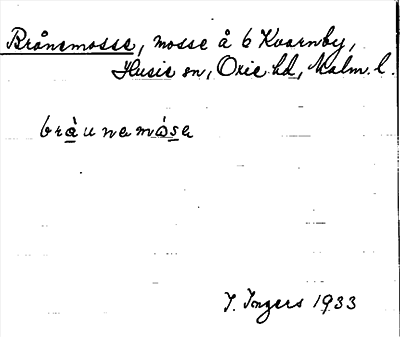 Brånemosse, mosse å 6 Kvarnby,
Husie sn, Oxie hd, Malm. l.
bràu nemósa
I. Ingers 1933